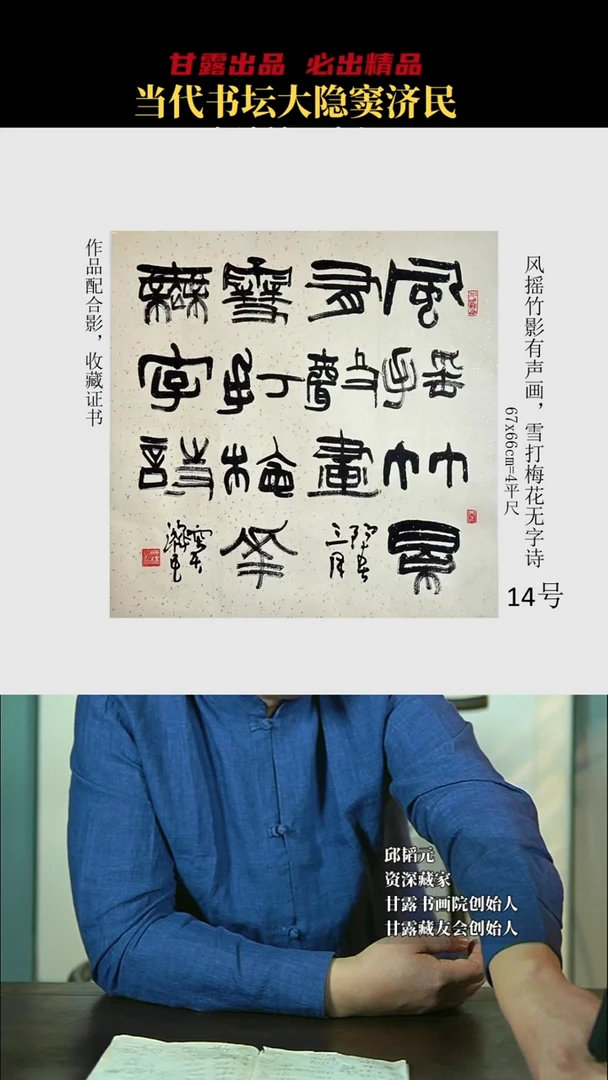 甘露出品 必出精品
当代书坛大隐窦济民
作品配合影，收藏证书
風搖竹影
有聲畫
雪打梅花
無字詩
风摇竹影有声画，雪打梅花无字诗
67x66cm=4平尺
14号
邱韬元
资深藏家
甘露书画院创始人
甘露藏友会创始人